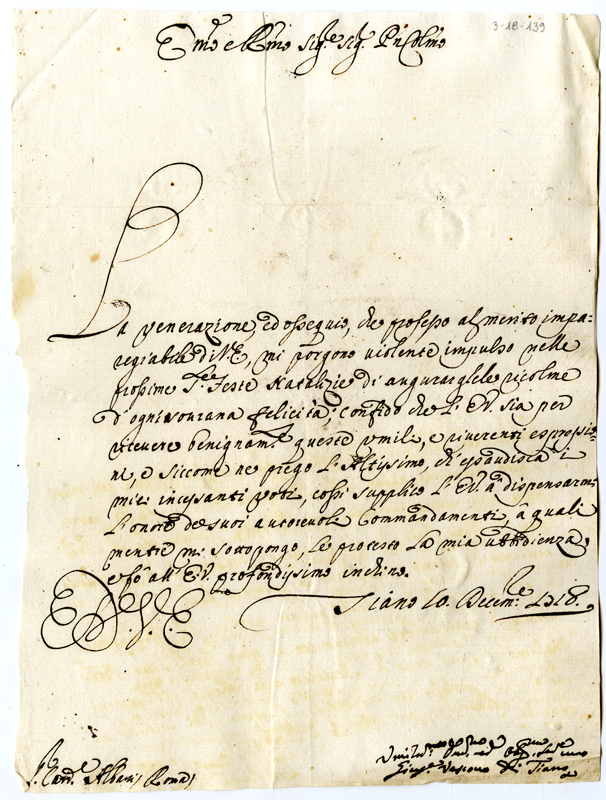 3-18-139
E.mo e R.mo Sig.re Sig. P'ron Colmo
La venerazione, ed ossequio, che professo al merito impa-
regiabile di V.E., mi porgono violente impulso nelle
prossime S.te Feste Natalizie di augurargliele ricolme
d'ogni sovrana felicità; confido che l'E.V. sia per
ricevere benignam.te queste umili, e riverenti espressio-
ni, e siccome ne prego l'Altissimo, ch'esaudisca i
miei incessanti voti, così supplico l'E.V. a dispensarmi
l'onore de suoi autorevoli Commandamenti, a quali
mentre mi sottopongo, le protesto la mia ubbidienza,
e fò all'E.V. profondissimo inchino.
Di V.E.
Tiano 10. Decem.re 1718.
S. Card.le Albani Roma
Umiliss.mo
Gius.e Vescovo di Tiano